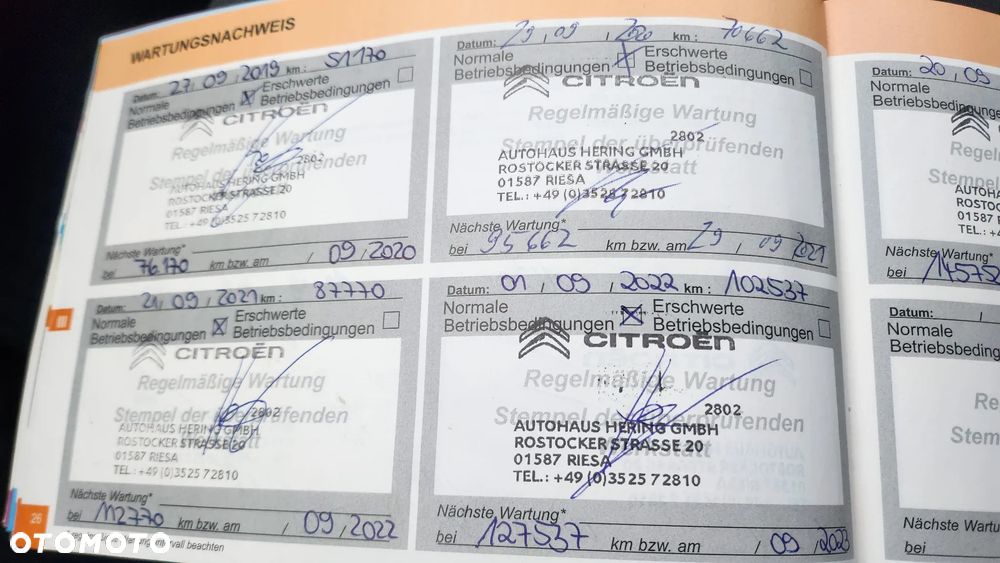 WARTUNGSNACHWEIS
Datum: 27, 09, 2019 km: 51170
Normale Betriebsbedingungen ☒ Erschwerte Betriebsbedingungen ☐
CITROËN
Regelmäßige Wartung
2802
Stempel der überprüfenden
AUTOHAUS HERING GMBH
ROSTOCKER STRASSE 20
01587 RIESA
TEL.: +49 (0)3525 72810
Nächste Wartung*
bei 76.170 km bzw. am / 09, 2020
Datum: 29, 09, 2020 70662
Normale Betriebsbedingungen ☒ Erschwerte Betriebsbedingungen ☐
CITROËN
Regelmäßige Wartung
2802
Stempel der überprüfenden
AUTOHAUS HERING GMBH
ROSTOCKER STRASSE 20
Werkstatt
01587 RIESA
TEL.: +49 (0)3525 72810
Nächste Wartung*
bei 95662 km bzw. am 29, 09, 2021
Datum: 21, 09, 2021 km: 87770
Normale Betriebsbedingungen ☒ Erschwerte Betriebsbedingungen ☐
CITROËN
Regelmäßige Wartung
2802
Stempel der überprüfenden
AUTOHAUS HERING GMBH
ROSTOCKER STRASSE 20
01587 RIESA
TEL.: +49 (0)3525 72810
Nächste Wartung*
bei 112770 km bzw. am / 09, 2022
beachten
26
Datum: 01, 09, 2022 km: 102537
Normale Betriebsbedingungen ☒ Erschwerte Betriebsbedingungen ☐
CITROËN
Regelmäßige Wartung
2802
Stempel der überprüfenden
AUTOHAUS HERING GMBH
ROSTOCKER STRASSE 20
Werkstatt
01587 RIESA
TEL.: +49 (0)3525 72810
Nächste Wartung*
bei 127537 km bzw. am / 09, 2023
Datum: 20, 09
Normale
Betriebsbedingunge
Regel
Stem
AUTOHA
ROSTO
01587
TEL.: +
Nächste Wartung*
bei 145752
Datum: /
Normale
Betriebsbeding
Re
Stem
Nächste Wartung
bei
OTOMOTO